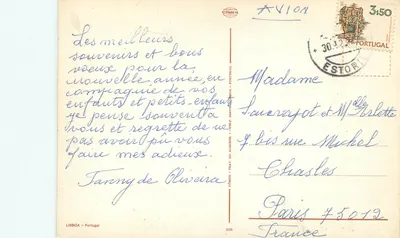 AVION
3$50
PORTUGAL
30.12
ESTORIL
Les meilleurs
souvenirs et bons
voeux pour la
nouvelle année, en
compagnie de vos
enfants et petits-enfants
je pense souvent à
vous et regrette de ne
pas avoir pu vous
faire mes adieux.
Fanny de Oliveira
Madame
et Mlle Arlette
7 bis rue Michel
Chasles
Paris 75012
France
LISBOA - Portugal